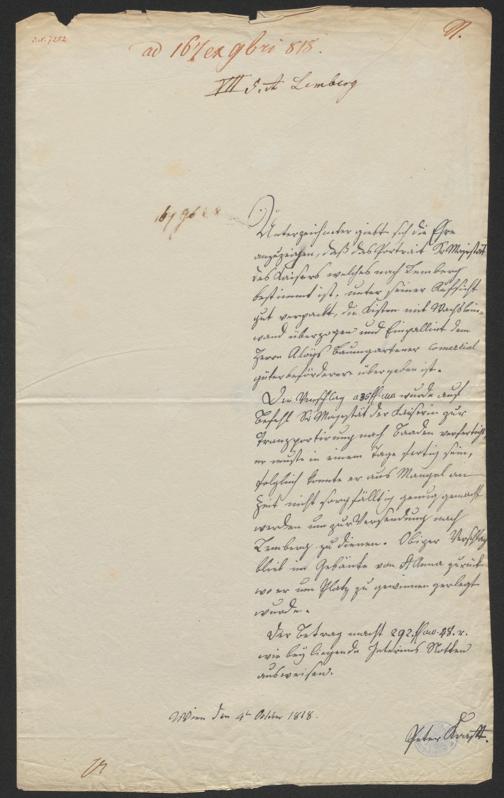 ad 167 ex 9bri 818.
VII Lemberg
Unterzeichneter giebt sich die Ehre
anzuzeigen, daß das Portrait Sr Majestät
des Kaisers welches nach Lemberg
bestimmt ist, unter seiner Aufsicht
gut verpackt, die Kisten mit Wachslein-
wand überzogen und Emballirt dem
Herrn Aloÿs Baumgartener Comertial
güterbeförderer übergeben ist.
Der Verschlag wurde auf
Befehl Sr Majestät der Kaiserin zur
Transportirung nach Baaden verfertigt
er mußte in einem Tage fertig sein,
folglich konnte er aus Mangel an
Zeit nicht sorgfälltig genug gemacht
werden um zur Versendung nach
Lemberg zu dienen. Obiger Verschlag
blieb im Gebäude von St Anna zurück
wo er um Platz zu gewinnen zerlegt
wurde.
Der Betrag macht 292 48. x.
wie bey liegende Interims Notten
ausweisen.
Wien den 4t October 1818.
Peter Krafft.